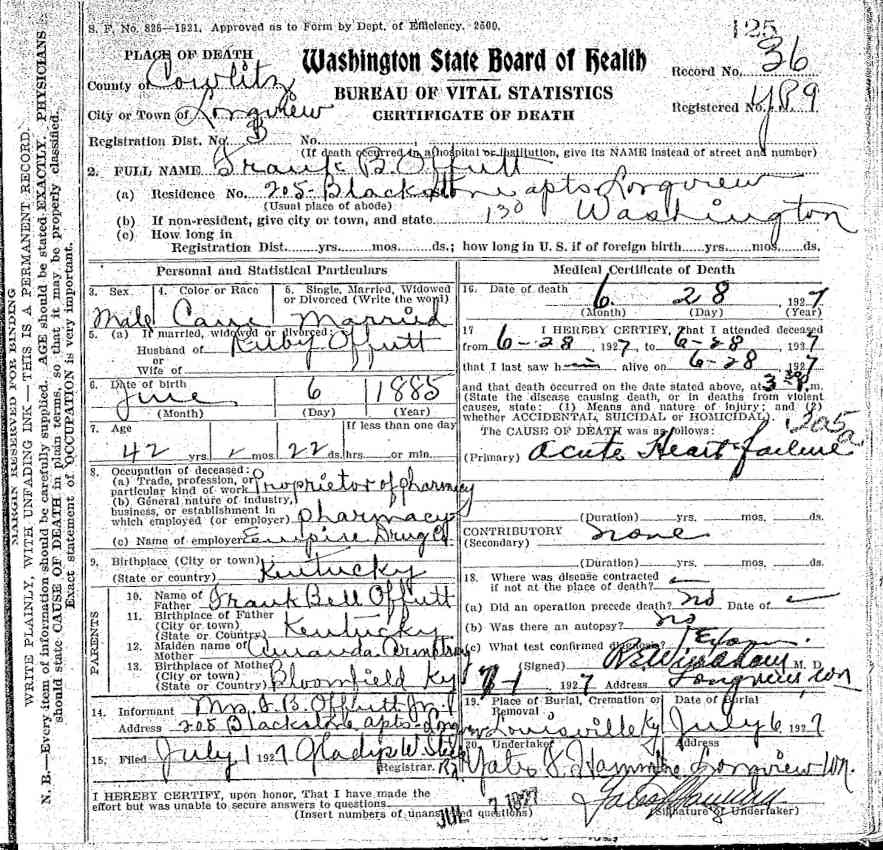 S. F. No. 825—1921. Approved as to Form by Dept. of Efficiency. 2500.
125
PLACE OF DEATH
Washington State Board of Health
County of Cowlitz
Record No. 36
BUREAU OF VITAL STATISTICS
City or Town of Longview
CERTIFICATE OF DEATH
Registered No.
Registration Dist. No. 3 No.
(If death occurred in a hospital or institution, give its NAME instead of street and number)
2. FULL NAME Frank B. Offutt
(a) Residence No. 205- Blackstone apts Longview
(Usual place of abode)
130 Washington
(b) If non-resident, give city or town, and state
(c) How long in
Registration Dist. yrs. mos. ds.; how long in U. S. if of foreign birth yrs. mos. ds.
Personal and Statistical Particulars
3. Sex Male
4. Color or Race Cau
5. Single, Married, Widowed or Divorced (Write the word) Married
5. (a) If married, widowed or divorced:
Husband of Ruby Offutt
or
Wife of
6. Date of birth
June 6 1885
(Month) (Day) (Year)
7. Age If less than one day
42 yrs. mos. 22 ds. hrs. or min.
8. Occupation of deceased:
(a) Trade, profession, or
particular kind of work Proprietor of pharmacy
(b) General nature of industry,
business, or establishment in
which employed (or employer) pharmacy
(c) Name of employer Empire Drug Co
9. Birthplace (City or town)
(State or country) Kentucky
PARENTS
10. Name of
Father Frank Bell Offutt
11. Birthplace of Father
(City or town)
(State or Country) Kentucky
12. Maiden name of
Mother Amanda Armstrong
13. Birthplace of Mother
(City or town)
(State or Country) Bloomfield Ky
14. Informant Mrs. F. B. Offutt Jr.
Address 205 Blackstone apts Longview
15. Filed July 1 1927 Gladys W.
Registrar.
I HEREBY CERTIFY, upon honor, That I have made the
effort but was unable to secure answers to questions
(Insert numbers of unanswered questions)
JUL 7 1927
Medical Certificate of Death
16. Date of death 6 28, 1927
(Month) (Day) (Year)
17 I HEREBY CERTIFY, That I attended deceased
from 6-28, 1927, to 6-28, 1927
that I last saw him alive on 6-28 1927
and that death occurred on the date stated above, at 3 m.
(State the disease causing death, or in deaths from violent
causes, state: (1) Means and nature of injury; and (2)
whether ACCIDENTAL, SUICIDAL or HOMICIDAL).
205a
The CAUSE OF DEATH was as follows:
(Primary) Acute Heart failure
(Duration) yrs. mos. ds.
CONTRIBUTORY none
(Secondary)
(Duration) yrs. mos. ds.
18. Where was disease contracted
if not at the place of death?
(a) Did an operation precede death? no Date of
(b) Was there an autopsy? no
(c) What test confirmed diagnosis? Exam.
(Signed) M. D.
7-1, 1927 Address Longview, Wn
19. Place of Burial, Cremation or Removal Louisville Ky
Date of Burial July 6, 1927
20. Undertaker Address
Longview Wn.
(Signature of Undertaker)
MARGIN RESERVED FOR BINDING
WRITE PLAINLY, WITH UNFADING INK—THIS IS A PERMANENT RECORD.
N. B.—Every item of information should be carefully supplied. AGE should be stated EXACTLY. PHYSICIANS
should state CAUSE OF DEATH in plain terms, so that it may be properly classified.
Exact statement of OCCUPATION is very important.